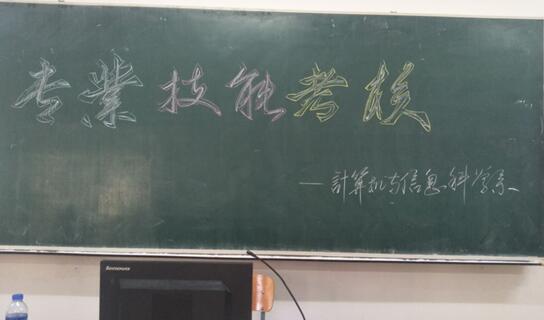 专業技能考核
—計算机与信息科学系
Lenovo